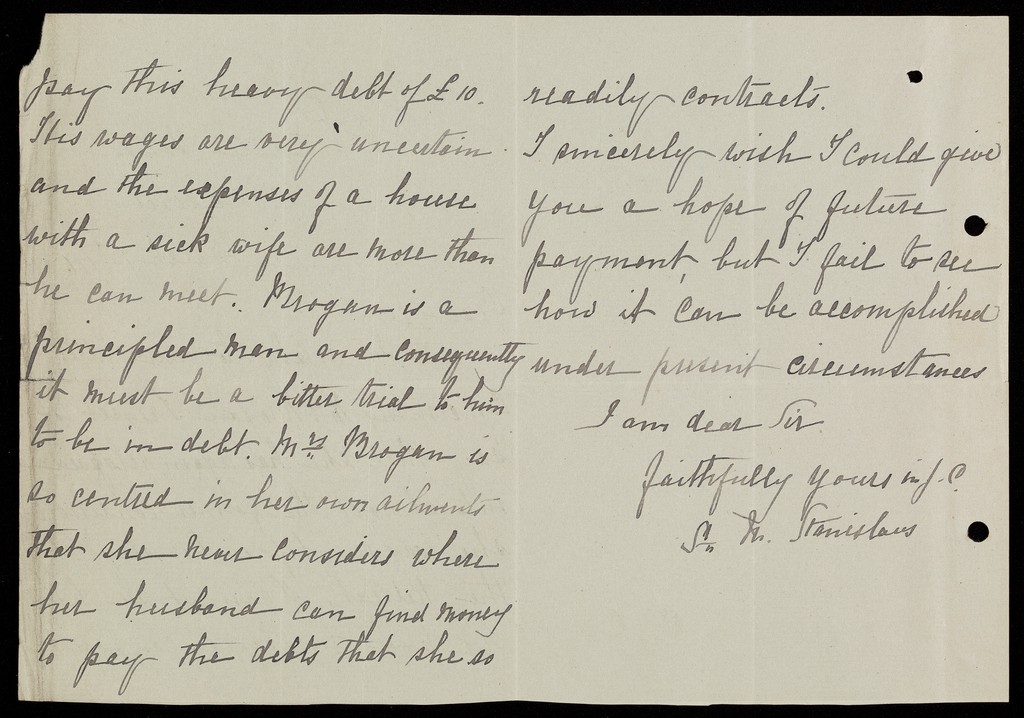 pay this heavy debt of £10.
His wages are very uncertain
and the expenses of a house
with a sick wife are more than
he can meet. Brogan is a
principled man and consequently
it must be a bitter trial to him
to be in debt. Mrs Brogan is
so centred in her own ailments
that she never considers where
her husband can find money
to pay the debts that she so
readily contracts.
I sincerely wish I could give
you a hope of future
payment, but I fail to see
how it can be accomplished
under present circumstances
I am dear Sir
faithfully yours in J. C.
Sr M. Stanislaus